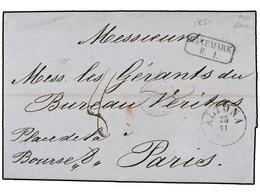 1857
Messieurs
DANEMARK
R. 1.
Mess. les Gérants du
Bureau Veritas
ALTONA
25
11
Place de la
Bourse, 8,
Paris.